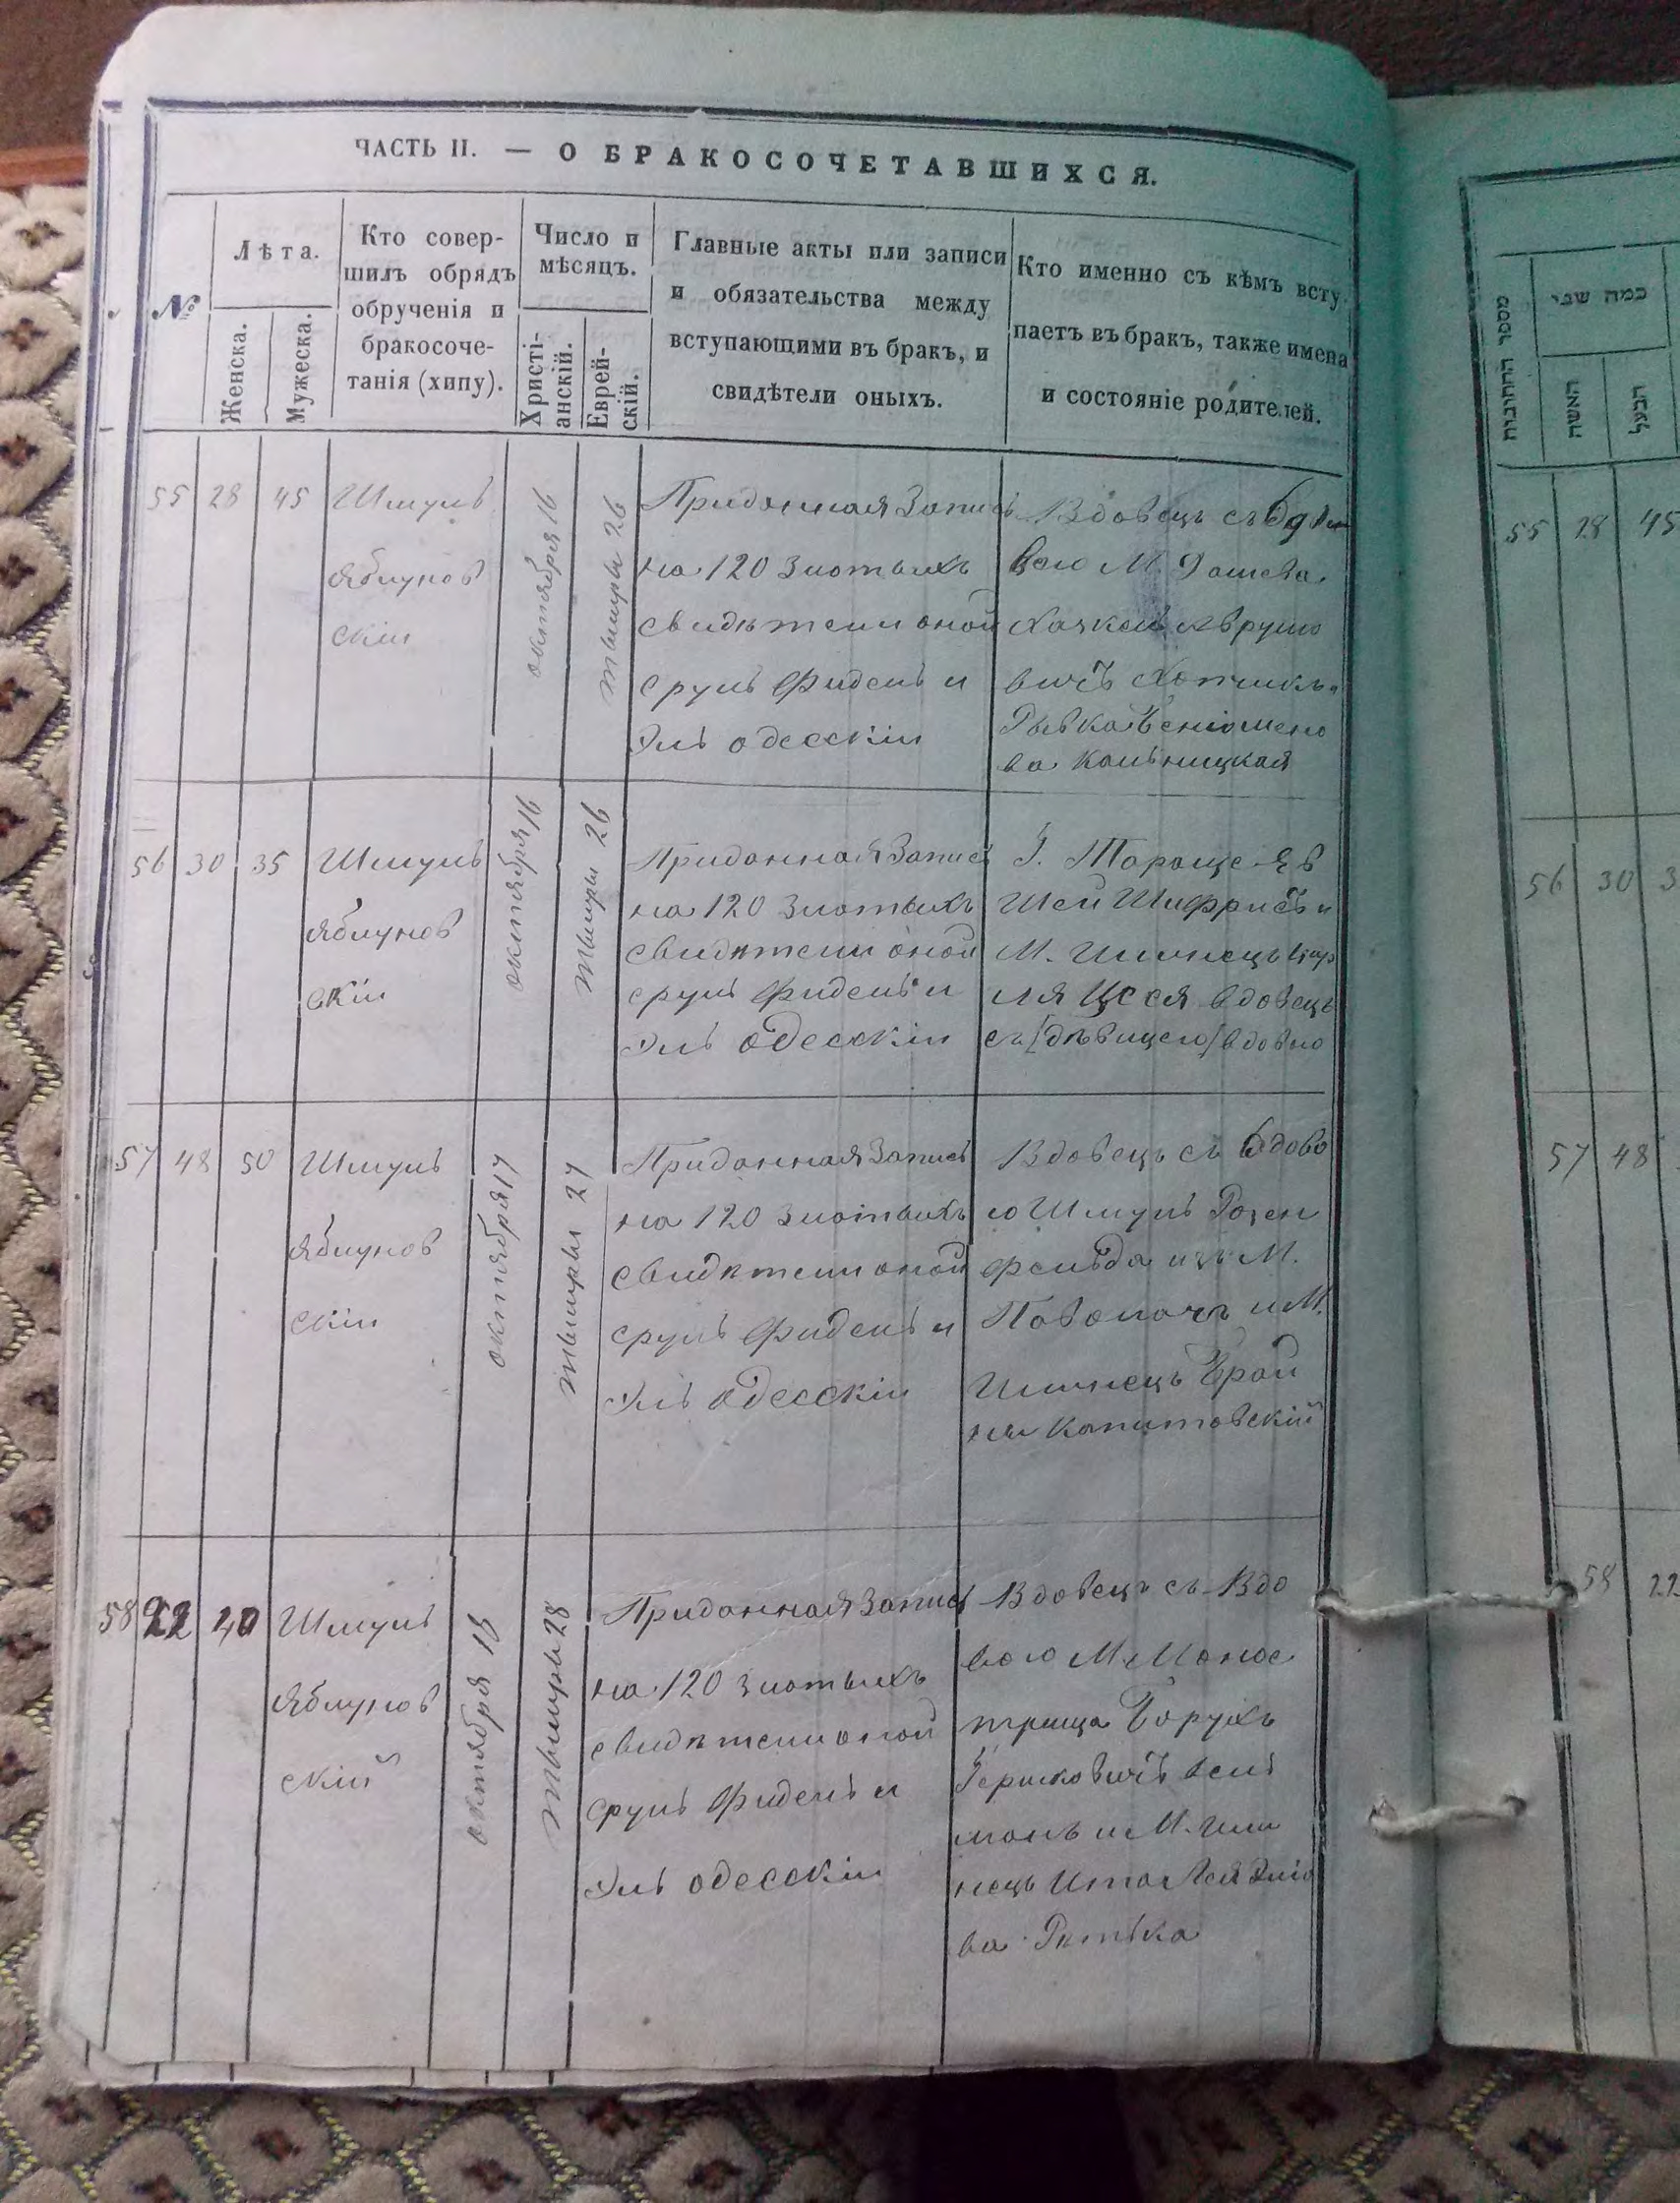 ЧАСТЬ II. — О БРАКОСОЧЕТАВШИХСЯ.
№
Лѣта.
Женска.
Мужеска.
Кто совер-
шилъ обрядъ
обрученія и
бракосоче-
танія (хипу).
Число и
мѣсяцъ.
Христі-
анскій.
Еврей-
скій.
Главные акты или записи
и обязательства между
вступающими въ бракъ, и
свидѣтели оныхъ.
Кто именно съ кѣмъ всту-
паетъ въ бракъ, также имена
и состояніе родителей.
55 28 45
Шмуль
Яблунов
скій
октября 16
тышры 26
Приданная Запись
на 120 злотыхъ
свидѣтели оной
сруль Фидель и
Эль одесскій
Вдовецъ съ вдо
вою М. Дашева
Аврумо
вичъ
Рывка Беніомено
ва Кальницкая
56 30 35
Шмуль
Яблунов
скій
октября 16
тышры 26
Приданная Запись
на 120 злотыхъ
свидѣтели оной
сруль Фидель и
Эль Одесскій
Г. Тараще
М. Илинецъ
вдовецъ
съ [дѣвицею] вдовою
57 48 50
Шмуль
Яблунов
скій
октября 17
тышры 27
Приданная Запись
на 120 злотыхъ
свидѣтели оной
сруль Фидель и
Эль Одесскій
Вдовецъ съ вдово
ю Шмуль Розен
фельда изъ М.
Паволочъ и М.
Илинецъ Брай
на
58 22 40
Шмуль
Яблунов
скій
октября 18
тышры 28
Приданная Запись
на 120 злотыхъ
свидѣтели оной
сруль Фидель и
Эль одесскій
Вдовецъ съ Вдо
вою М. Монас
трища Борухъ
Гершковичъ Зель
манъ и М. Или
нецъ Ита Лея
ва
מספר החתונות
כמה שני
האשה
הבעל
55 28 45
56 30 3
57 48
58 22